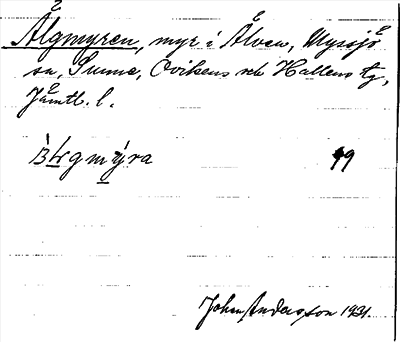 Ålgmyren, myr i Ålven, Myssjö
sn, Sunne, Ovikens och Hallens tg,
Jämtl. l.
gmýra 19
Johan Andersson 1931.